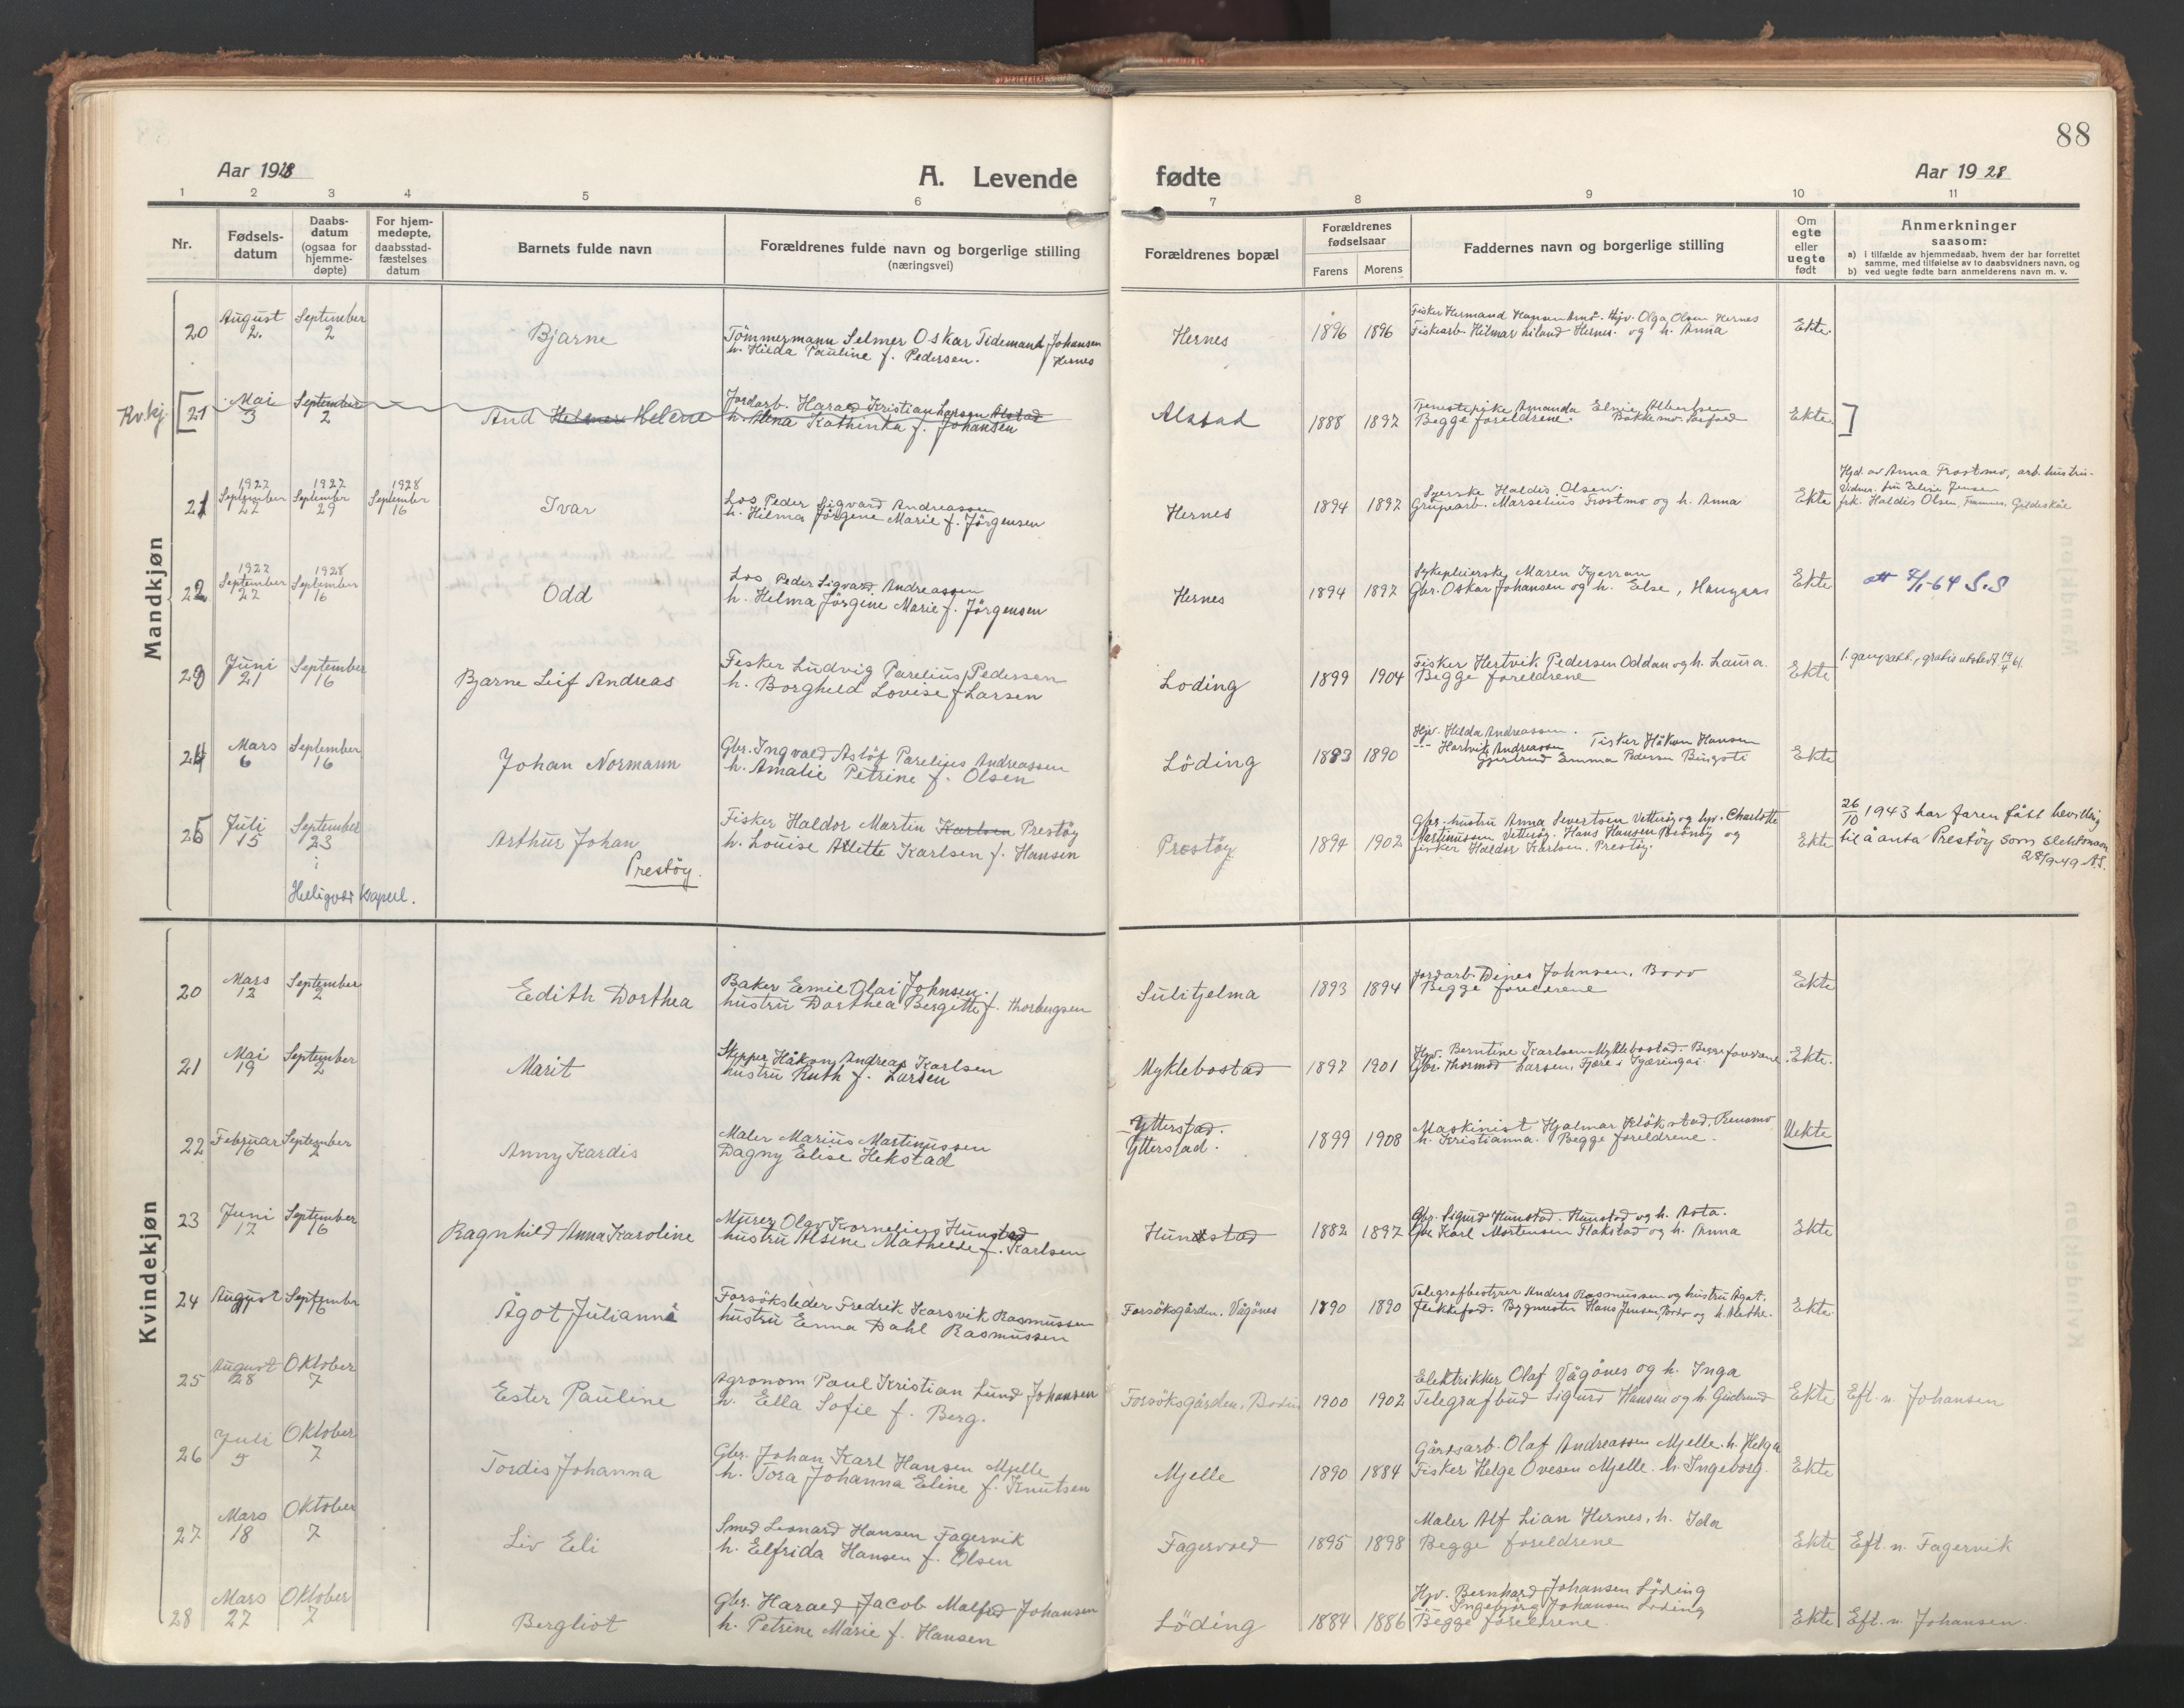 88
Aar 1928
A. Levende fødte
Aar 1928
1 2 3 4 5 6 7 8 9 10 11
Nr.
Fødsels-
datum
Daabs-
datum
(ogsaa for
hjemme-
døpte)
For hjem-
medøpte,
daabsstad-
fæstelses
datum
Barnets fulde navn
Forældrenes fulde navn og borgerlige stilling
(næringsvei)
Forældrenes bopæl
Forældrenes
fødselsaar
Farens Morens
Faddernes navn og borgerlige stilling
Om
egte
eller
uegte
født
Anmerkninger
saasom:
a) i tilfælde av hjemmedaab, hvem der har forrettet
samme, med tilføielse av to daabsvidners navn, og
b) ved uegte fødte barn anmelderens navn m. v.
Mandkjøn
20
August
2.
September
2
Bjarne
Tömmermann Selmer Oskar Tidemand Johansen
h. Hilda Pauline f. Pedersen. Hernes
Hernes
1896 1896
Fisker Hermand Hansen Hjv. Olga Olsen Hernes
Fiskearb. Hilmar Hernes. og h. Anna
Ekte.
Kv.kj. [21
Mai
3
September
2
Aud Helmer Helene
Jordarb. Harald Kristian Larsen Alstad
h. Alena Kathinka f. Johansen
Alstad
1888 1897
Tjenestepike Amanda
Begge foreldrene.
Ekte. ]
21
1927
September
27
1927
September
29
1928
September
16
Ivar
Los Peder Sigvard Andreassen
h. Hilma Jörgine Marie f. Jörgensen
Hernes
1894 1897
Syerske Haldis Olsen.
Grupearb. Marselius Trostmo og h. Anna
Ekte
Hjd. av Anna Trostmo, arb. hustru.
Vidner. fru Jensen
frk. Haldis Olsen, Gildeskål
22
1927
September
27
1928
September
16
Odd
Los Peder Sigvard Andreassen
h. Helma Jörgine Marie f. Jörgensen
Hernes
1894 1897
Sykepleierske Maren
Gbr. Oskar Johansen og h. Else,
Ekte
att 7/1-64 S.S
23
Juni
21
September
16
Bjarne Leif Andreas
Fisker Ludvig Parelius Pedersen
h. Borghild Lovise f Larsen
Loding
1899 1904
Fisker Hertvik Pedersen Oddan og h. Laura.
Begge foreldrene
Ekte
24
Mars
6
September
16
Johan Normann
Gbr. Ingvald Aslöf Parelius Andreassen
h. Amalie Petrine f. Olsen
Löding
1883 1890
Hjv. Hilda Andreassen.
Hartvik Andreassen Fisker Håkon Hansen
Gjertrud Emma Pedersen
Ekte
25
Juli
15
September
23
Heligvær kapell.
Arthur Johan
Prestöy.
Fisker Haldor Martin Karlsen Prestöy
h. Louise Alette Karlsen f. Hansen
Prestöy
1894 1902
Gbr. hustru Anna Sivertsen Vetteröy og hjv. Charlotte
Martinussen Vetteröy. Hans Hansen og
fisker Haldor Karlsen. Prestöy.
Ekte
26/10 1943 har faren fått bevilling
til å anta Prestöy som slektsnavn
28/9-49 A.S.
Kvindekjøn
20
Mars
12
September
2
Edith Dorthea
Baker Emil Olai Johnsen.
hustru Dorthea Bergitte f. Thorbergsen
Sulitjelma
1893 1894
Jordarb. Dines Johnsen, Bodö
Begge foreldrene
Ekte
21
Mai
19
September
2
Marit
Skipper Håkon Andreas Karlsen
hustru Ruth f. Larsen
Myklebostad
1897 1901
Hjv. Berntine Karlsen Myklebostad. Begge foreldrene
Gbr. Thormod Larsen, Fjære i Kjæringöi.
Ekte.
22
Februar
16
September
2
Anny Kardis
Maler Marius Martinussen
Dagny Elise Hekstad
Ytterstad.
Ytterstad.
1899 1908
Maskinist Hjalmar Klökstad,
h. Kristianna. Begge foreldrene.
Uekte
23
Juni
17
September
16
Ragnhild Anna Karoline
Murer Olav Kornelius Hunstad
hustru Alsine Mathilde f. Karlsen
Hunstad
1882 1897
Gbr. Sigurd Hunstad. Hunstad og h. Asta.
Gbr. Karl Mortensen Flakstad og h. Anna
Ekte
24
August
September
16
Ågot Julianne
Forsöksleder Fredrik Karsvik Rasmussen
hustru Emma Dahl Rasmussen
Forsöksgården. Vågönes
1890 1890
Telegrafbestyrer Anders Rasmussen og hustru Ågot.
Flekkefjord. Bygmester Hans Jensen, Bodö og h.
Ekte.
25
August
28
Oktober
7
Ester Pauline
Agronom Paul Kristian Lund Johansen
h. Ella Sofie f. Berg.
Forsöksgården. Bodin
1900 1902
Elektrikker Olaf Vågönes og h. Inga
Telegrafbud Sigurd Hansen og h. Gudrund
Ekte
Eft. n. Johansen
26
Juli
5
Oktober
7
Tordis Johanna
Gbr. Johan Karl Hansen Mjelle
h. Tora Johanna Eline f. Knutsen
Mjelle
1890 1884
Gårdsarb. Olaf Andreassen Mjelle. h. Helga
Fisker Helge Ovesen Mjelle. h. Ingeborg.
Ekte
27
Mars
18
Oktober
7
Liv Eli
Smed Leonard Hansen Fagervik
h. Elfrida Hansen f. Olsen
Fagervold
1895 1898
Maler Alf Lian Hernes, h. Ida
Begge foreldrene
Ekte
Eft. n. Fagervik
28
Mars
27
Oktober
7
Bergliot
Gbr. Harald Jacob Malfred Johansen
h. Petrine Marie f. Hansen
Löding
1884 1886
Hjv. Bernhard Johansen Löding
Ingebjörg Johansen Löding
Begge foreldrene.
Ekte
Eft. n. Johansen.